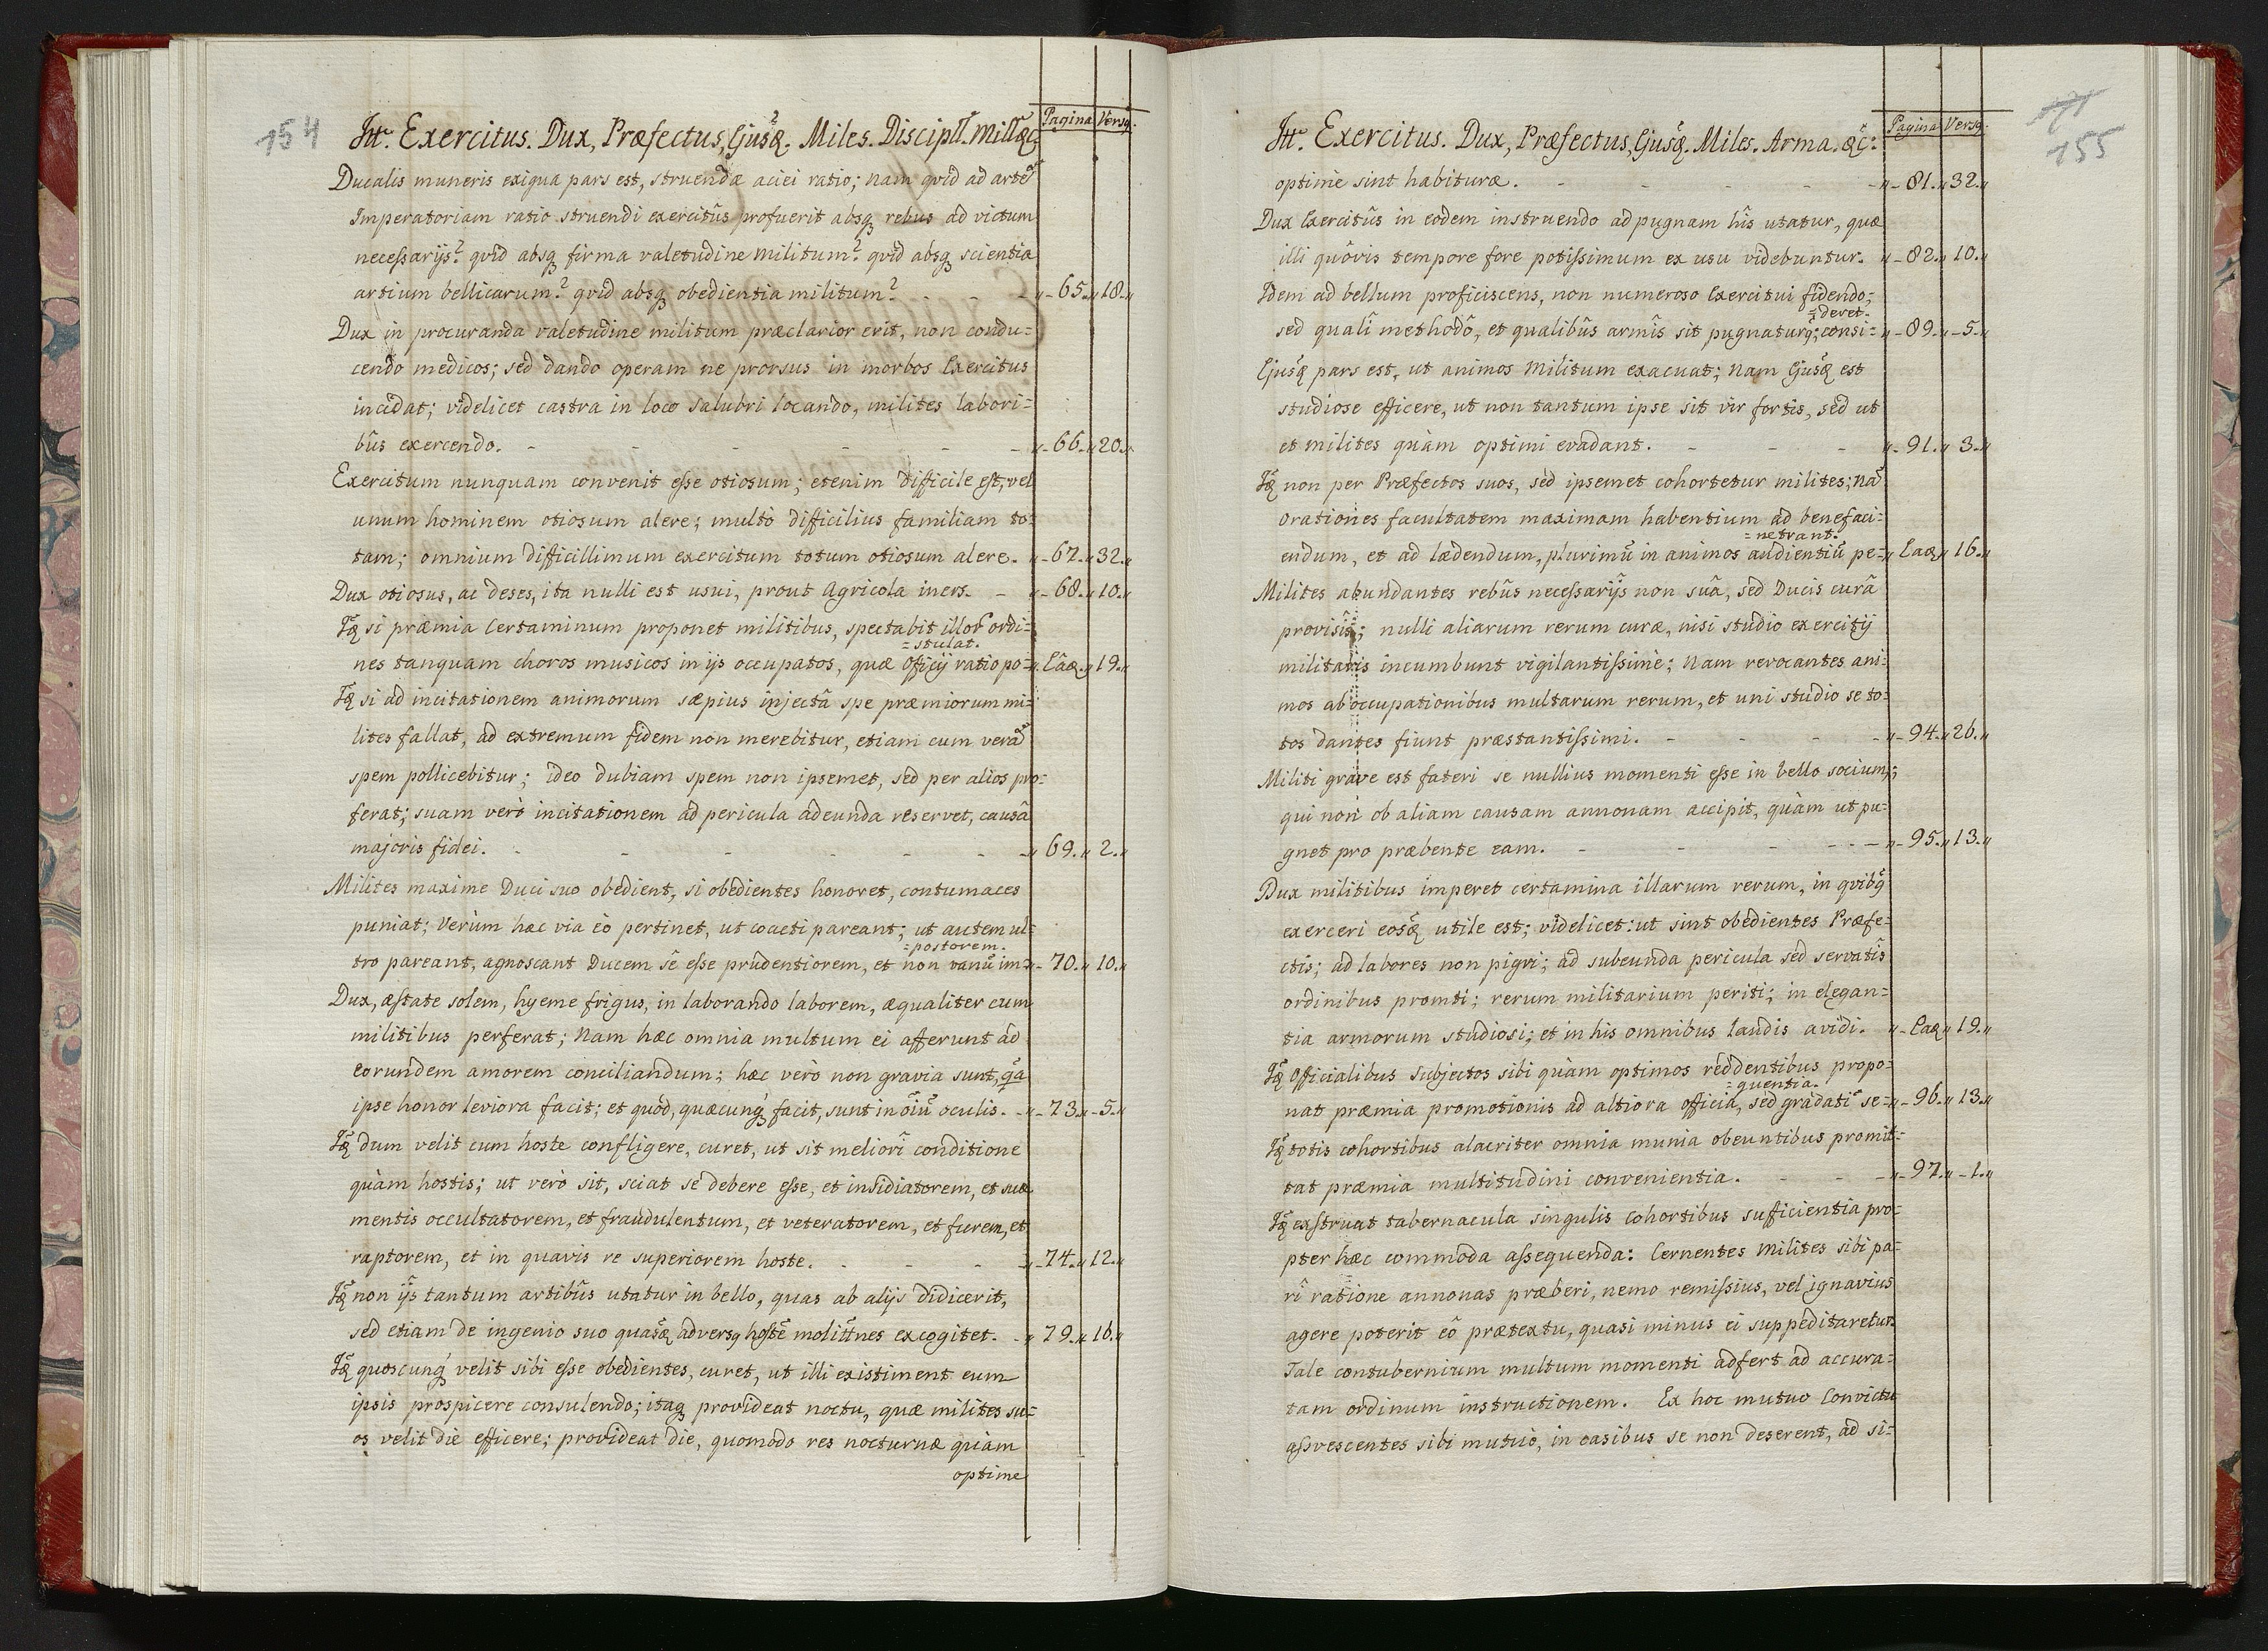 154
Itr. Exercitus. Dux, Præfectus, Ejusq̃. Miles. Discipl. Milit. &c.
Pagina Versq.
Ducalis muneris exiqua pars est, struendæ aciei ratio; nam qvid ad artẽ
Imperatoriam ratio struendi exercitûs profuerit absq rebus ad victum
necessarijs? qvid absq firma valetudine militum? qvid absq scientia
artium bellicarum? qvid absq obedientia militum? - - - „-65.„18.„
Dux in procuranda valetudine militum præclarior erit, non condu=
cendo medicos; sed dando operam ne prorsus in morbos Exercitus
incidat; videlicet castra in loco salubri locando, milites labori=
bûs exercendo. - - - - - - „-66.„20.„
Exercitum nunquam convenit esse otiosum; etenim difficile est, vel
unum hominem otiosum alere; multò difficilius familiam to=
tam; omnium difficillimum exercitum totum otiosum alere. „-67.„32.„
Dux otiosus, ac deses, ita nulli est usui, prout Agricola iners. - „-68.„10.„
Iq̃ si præmia Certaminum proponet militibus, spectabit illor ordi=
=stulat.
nes tanquam choros musicos in ijs occupatos, quæ officij ratio po= „Eâq.„19.„
Iq̃ si ad incitationem animorum sæpius injectâ spe præmiorum mi=
lites fallat, ad extremum fidem non merebitur, etiam cum verã
spem pollicebitur; ideo dubiam spem non ipsemet, sed per alios pro=
ferat; suam verò incitationem ad pericula adeunda reservet, causâ
majoris fidei. - - - - - - „69.„2.„
Milites maxime Duci suo obedient, si obedientes honoret, contumaces
puniat; Verùm hæc via eò pertinet, ut coacti pareant; ut autem ul=
=postorem.
tro pareant, agnoscant Ducem sê esse prudentiorem, et non vanũ im= „-70.„10.„
Dux, æstate solem, hyeme frigus, in laborando laborem, æqualiter cum
militibus perferat; Nam hæc omnia multum ei afferunt ad
eorundem amorem conciliandum; hæc verò non gravia sunt, q̃a
ipse honor leviora facit; et quòd, quæcunq́ facit, sunt in õiũ oculis. - „-73.„-5.„
Iq̃ dum velit cum hoste confligere, curet, ut sit meliorî conditione
quàm hostis; ut verò sit, sciat se debere esse, et insidiatorem, et suæ
mentis occultatorem, et fraudulentum, et veteratorem, et furem, et
raptorem, et in quavis re superiorem hoste. - - - - „-74.„12.„
Iq̃ non ijs tantum artibûs utatur in bello, quas ab alijs didicerit,
sed etiam de ingenio suo quasq̃ adversq hostẽ molitĩnes excogitet. - „79.„16.„
Iq̃ quoscunq́ velit sibi esse obedientes, curet, ut illi existiment eum
ipsis prospicere consulendo; itaq provideat noctu, quæ milites su=
os velit die efficere; provideat die, quomodo res nocturnæ quàm
optime
155
Itr. Exercitus. Dux, Præfectus, Ejusq̃. Miles. Arma. &c:
Pagina Versq.
optime sint habituræ. - - - - - „-81.„32.„
Dux Exercitûs in eodem instruendo ad pugnam hîs utatur, quæ
illi quôvis tempore fore potissimum ex usu videbuntur. „-82.„10.„
Idem ad bellum proficiscens, non numeroso Exercitui fidendo;
=deret.
sed qualî methodô, et qualibûs armîs sit pugnaturq; consi= „-89.„-5.„
Ejusq̃ pars est, ut animos Militum exacuat; Nam Ejusq̃ est
studiose efficere, ut non tantum ipse sit vir fortis, sed ut
et milites quàm optimi evadant. - - - „-91.„3.„
Iq̃ non per Præfectos suos, sed ipsemet cohortetur milites; nã
orationes facultatem maximam habentium ad benefaci=
=netrant.
endum, et ad lædendum, plurimũ in animos audientiũ pe= „Eaq„16.„
Milites abundantes rebûs necessarijs non suâ, sed Ducis curâ
provisîs; nulli aliarum rerum curæ, nisi studio exercitij
militaris incumbunt vigilantissimè; Nam revocantes ani=
mos ab occupationibus multarum rerum, et uni studio se to=
tos dantes fiunt præstantissimi. - - - - „-94.„26.„
Militi grave est fateri se nullius momenti esse in bello socium;
qui non ob aliam causam annonam accipit, quàm ut pu=
gnet pro præbente eam. - - - - - „-95.„13.„
Dux militibus imperet certamina illarum rerum, in qvibq̃
exerceri eosq̃ utile est; videlicet: ut sint obedientes Præfe=
ctis; ad labores non pigri; ad subeunda pericula sed servatîs
ordinibus promti; rerum militarium periti; in elegan=
tia armorum studiosi; et in his omnibus laudis avidi. „-Eaq„19.„
Iq̃ Officialibus subjectos sibi quàm optimos reddentibus propo=
=quentia.
nat præmia promotionis ad altiora officia, sed gradatĩ se= „-96.„13.„
Iq̃ totis cohortibus alacriter omnia munia obeuntibus promit=
tat præmia multitudini convenientia. - - - „-97.„-1.„
Iq̃ exstruat tabernacula singulis Cohortibus sufficientia pro=
pter hæc commoda assequenda: Cernentes Milites sibi pa=
rî ratione annonas præberi, nemo remissius, vel ignavius
agere poterit eô prætextu, quasi minus ei suppeditaretur.
Tale contubernium multum momenti adfert ad accura=
tam ordinum instructionem. Ex hoc mutuo Convictu
assvescentes sibi mutuò, in casibus se non deserent, ad si=